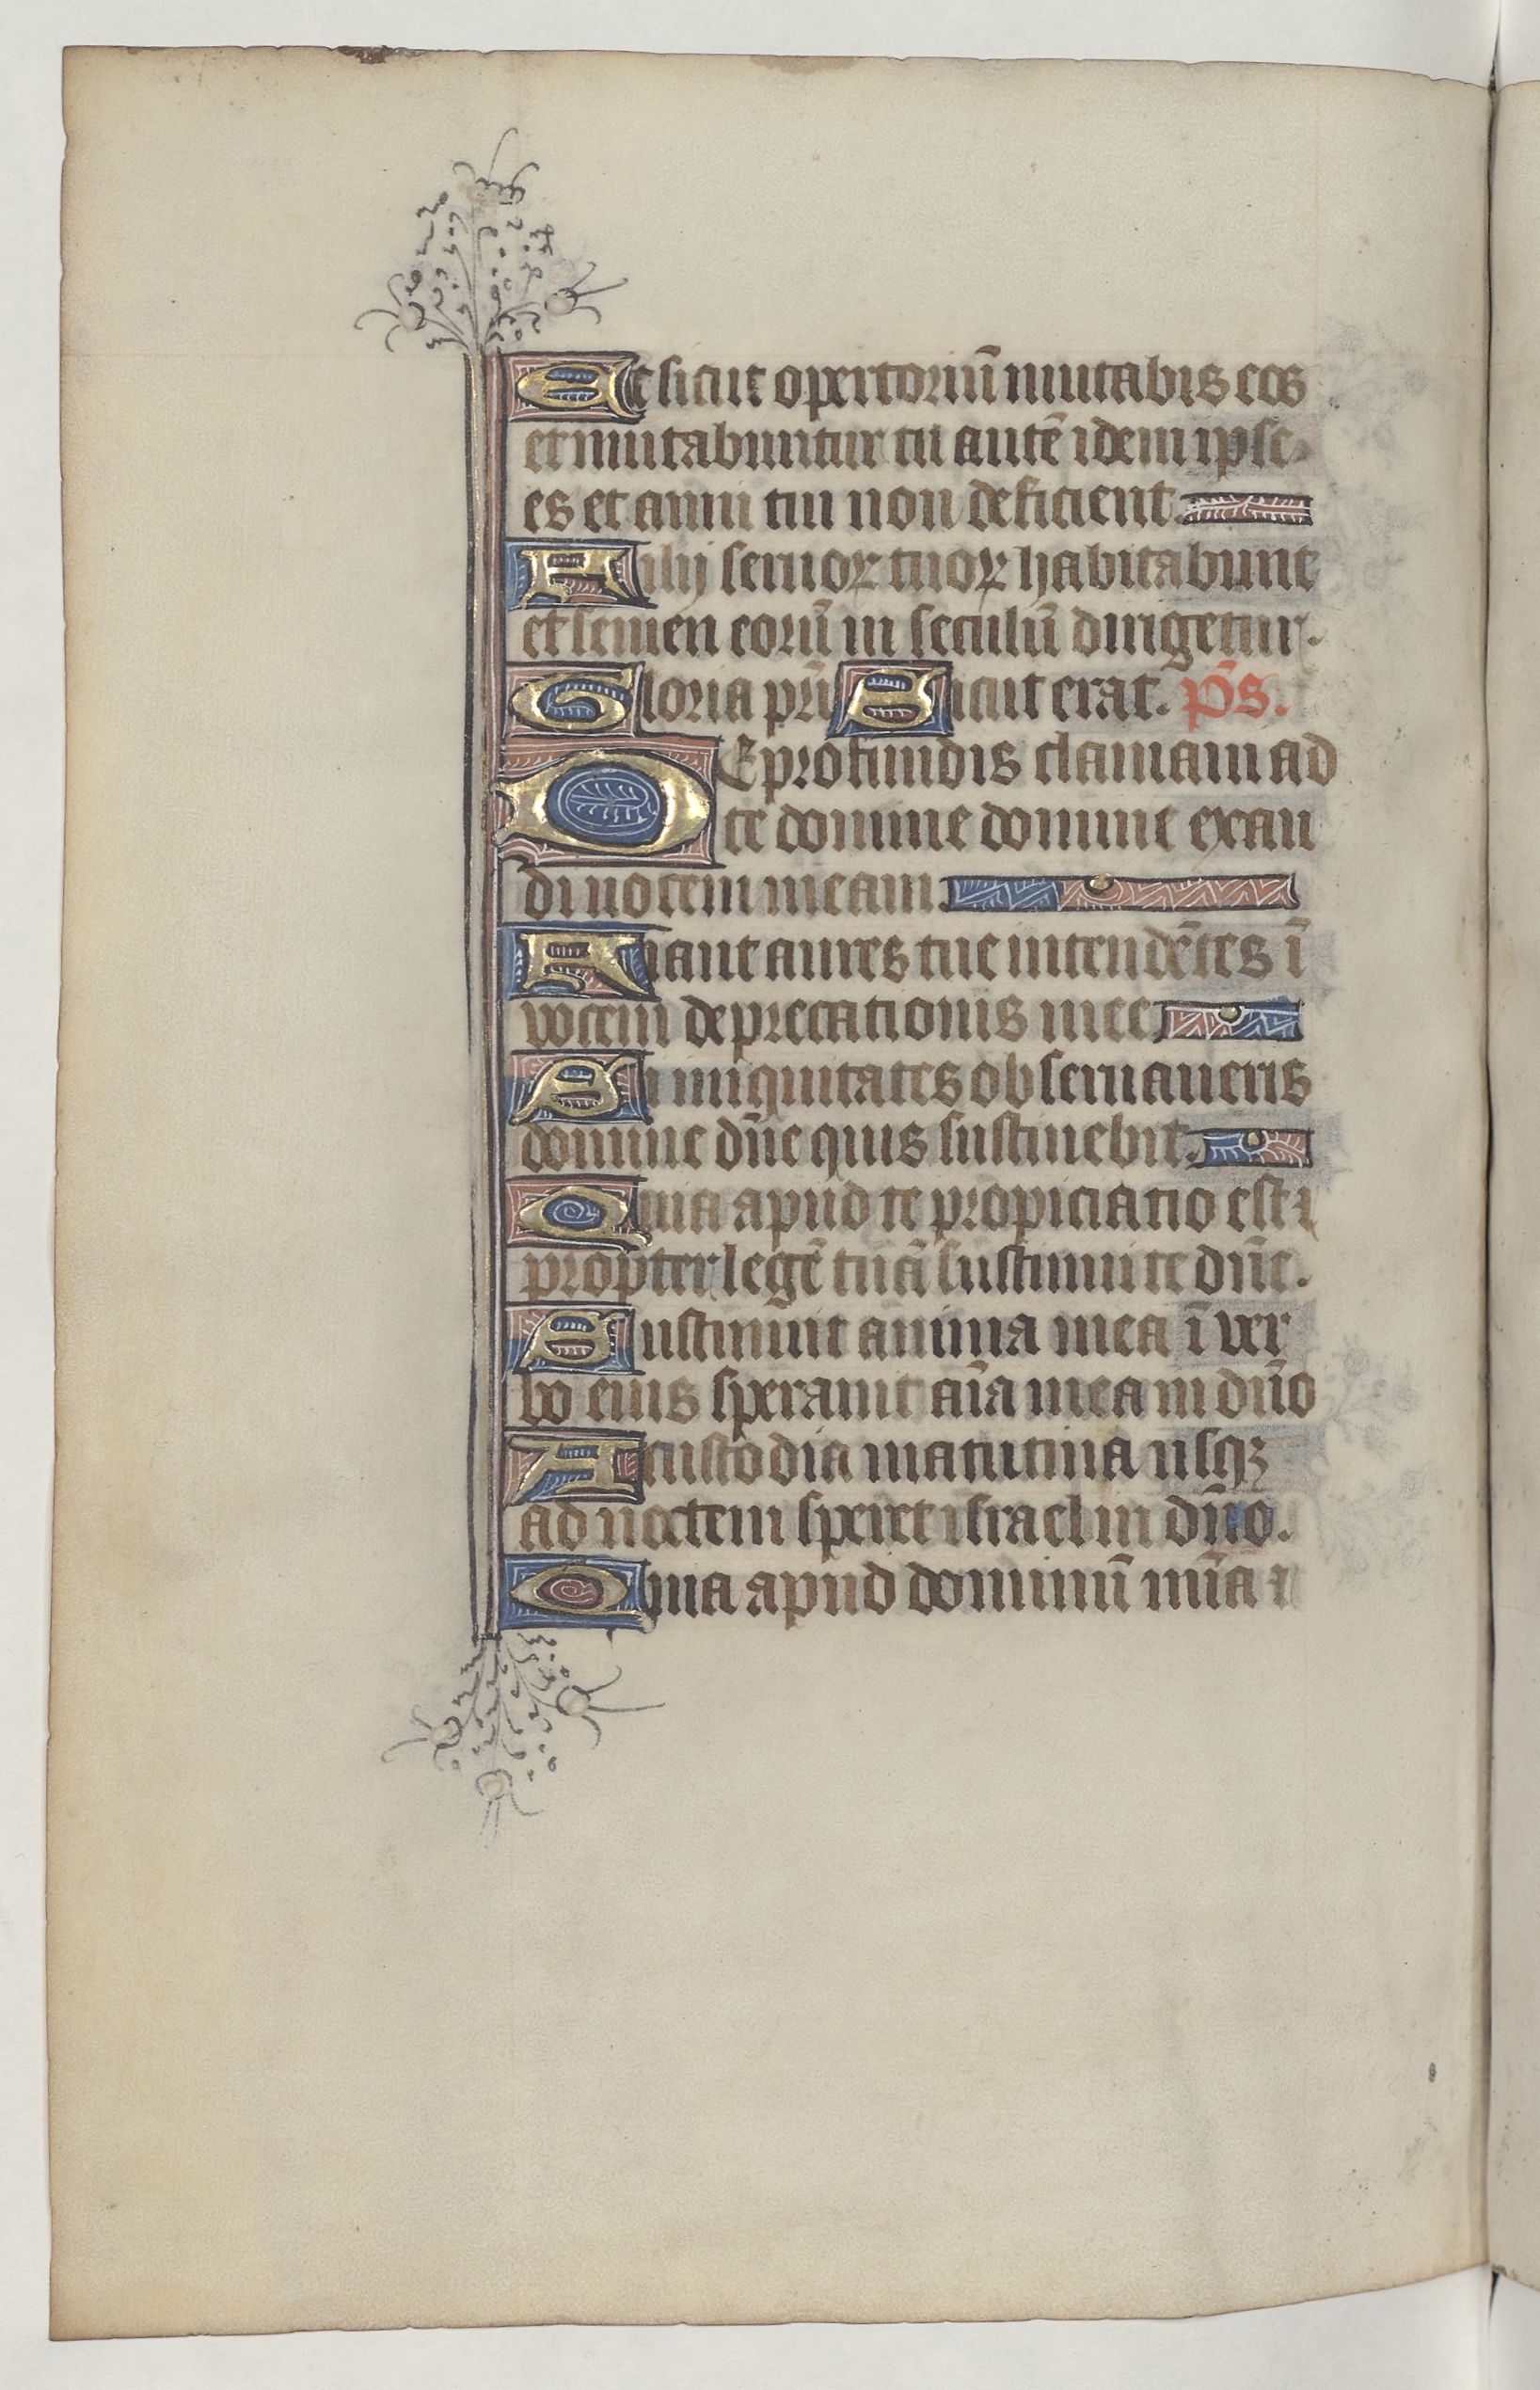 Et sicut opertoriū mutabis eos
et mutabuntur tu autē idem ipse
es et anni tui non deficient.
Filij seruoꝝ tuoꝝ habitabunt
et semen eorū in seculū dirigetur.
Gloria pr̄i Sicut erat. p̄s.
DE profundis clamaui ad
te domine domine exau
di uocem meam.
Fiant aures tue intendētes ī
vocem deprecationis mee.
Si iniquitates obseruaueris
domine dn̄e quis sustinebit.
Quia apud te propiciatio est ⁊
propter legē tuā sustinui te dn̄e.
Sustinuit anima mea ī ver
bo eius sperauit aīa mea in dn̄o
A custodia matutina usqꝫ
ad noctem speret israel in dn̄o.
Quia apud dominū mīa ⁊